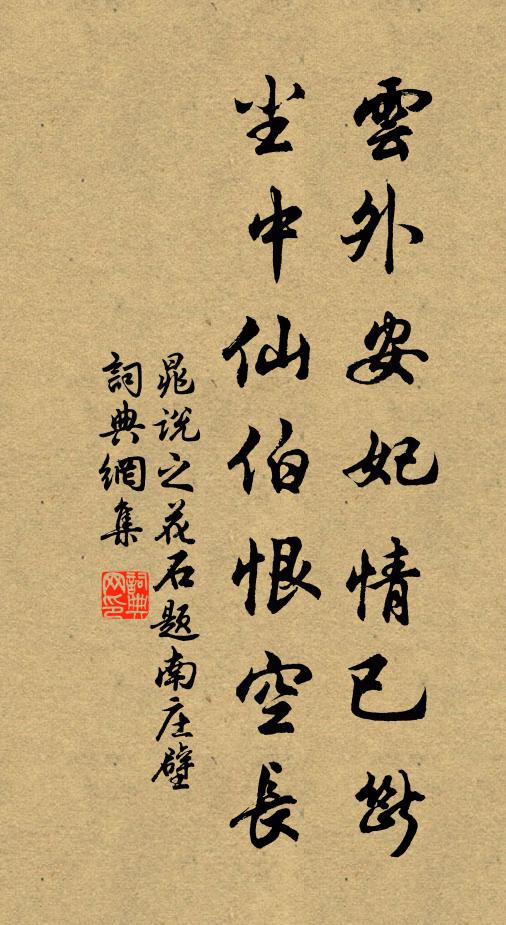 雲外安妃情已斷
尘中仙伯恨空長
晁說之花石題南庄壁
詞典網集
詞典
网印